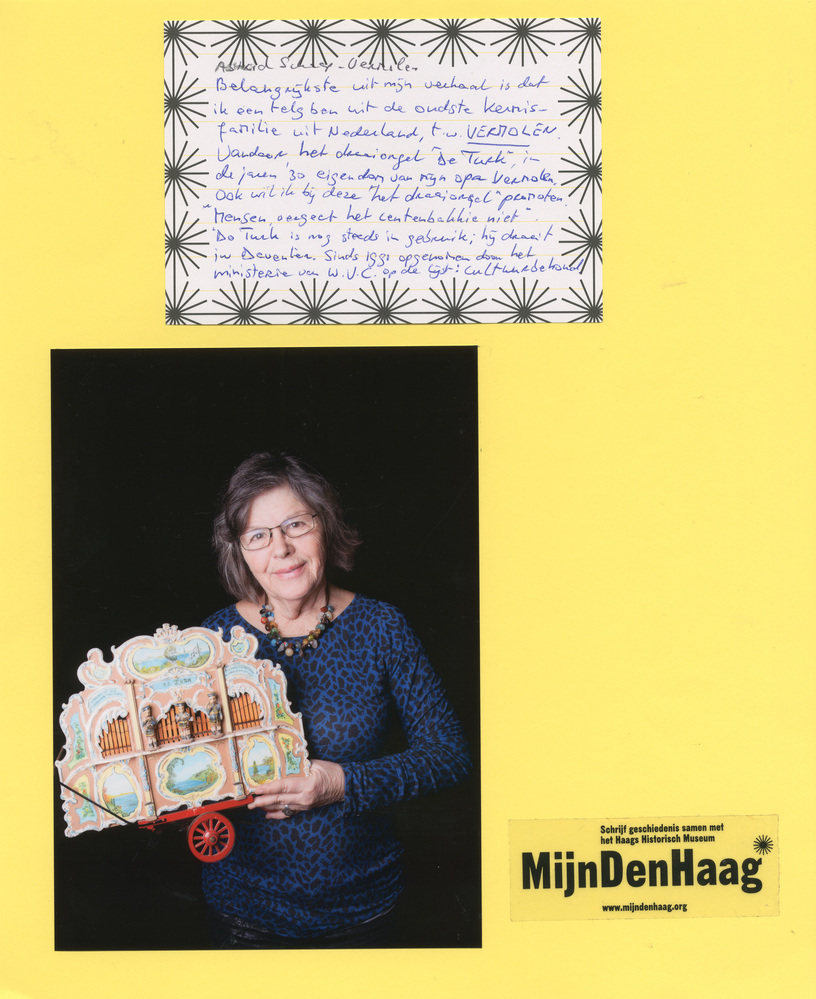 Astrid Schaap-Vermolen
Belangrijkste uit mijn verhaal is dat
ik een telg ben uit de oudste kermis-
familie uit Nederland, t.w. VERMOLEN.
Vandaar het draaiorgel "De Turk", in
de jaren '30 eigendom van mijn opa Vermolen.
Ook wil ik bij deze "het draaiorgel" promoten.
"Mensen, vergeet het centenbakkie niet".
"De Turk is nog steeds in gebruik; hij draait
in Deventer. Sinds 1991 opgenomen door het
ministerie van W.V.C. op de lijst: Cultuurbehoud
Schrijf geschiedenis samen met
het Haags Historisch Museum
MijnDenHaag
www.mijndenhaag.org